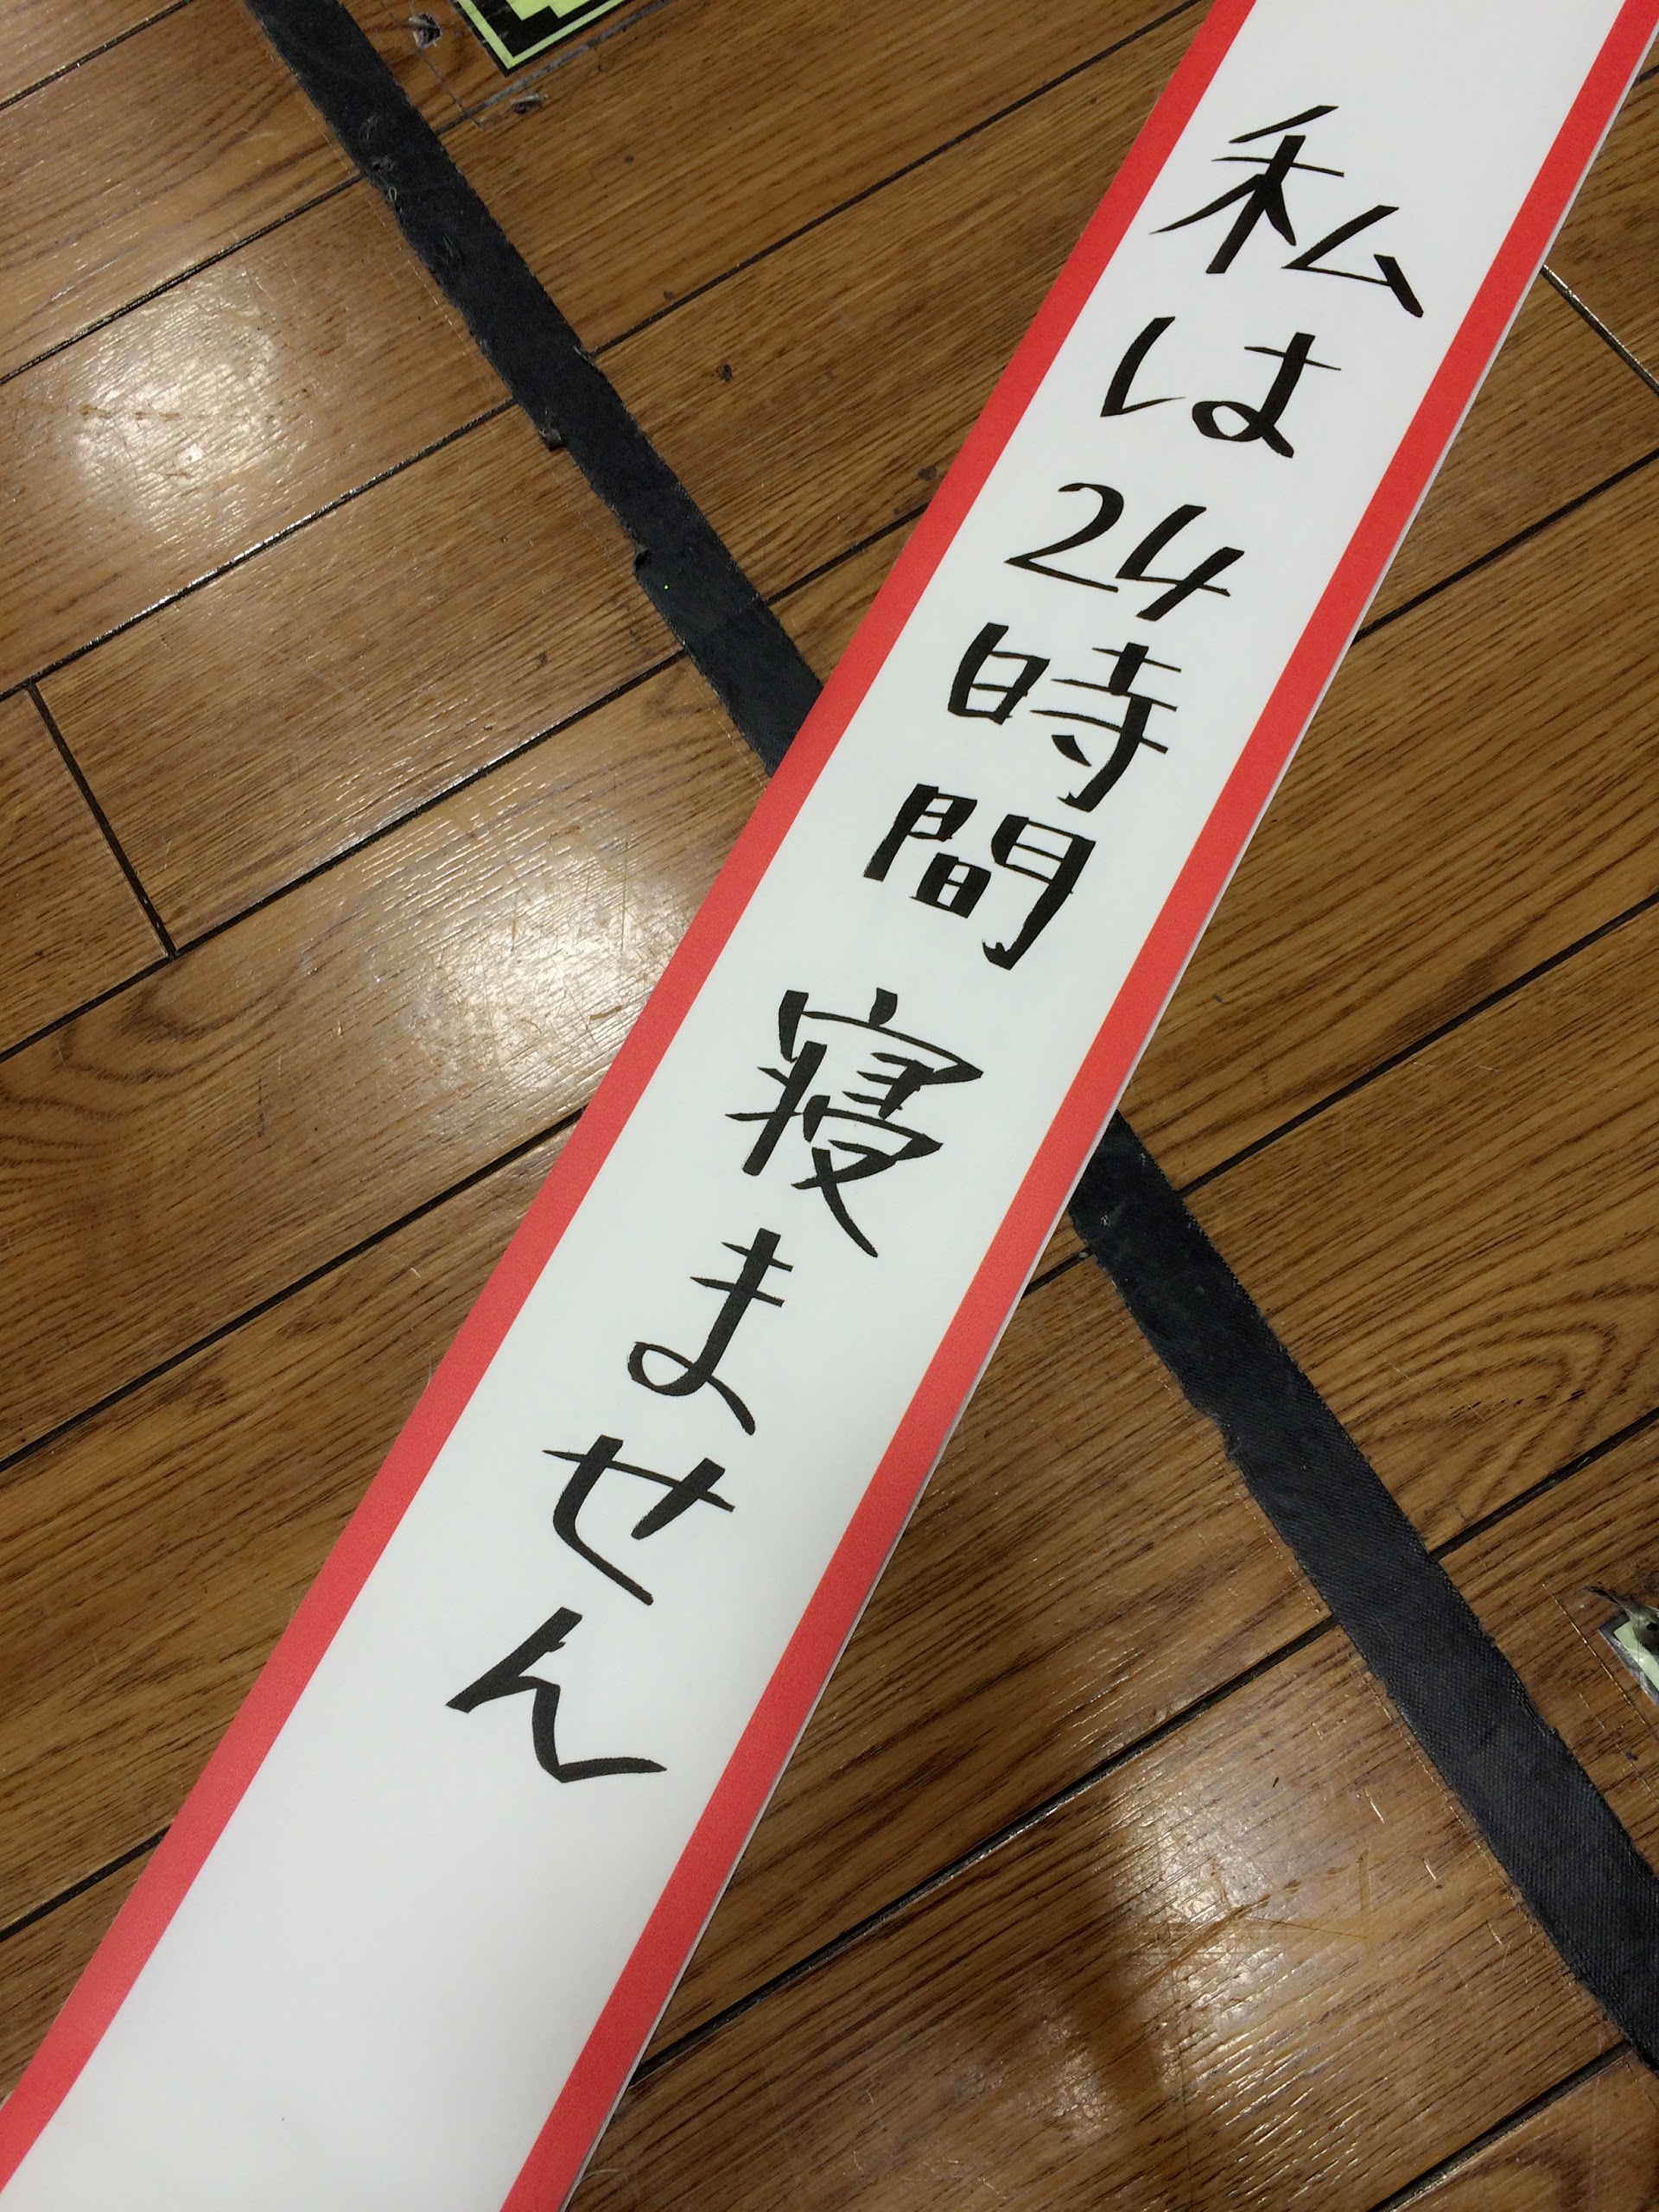 私は24時間寝ません